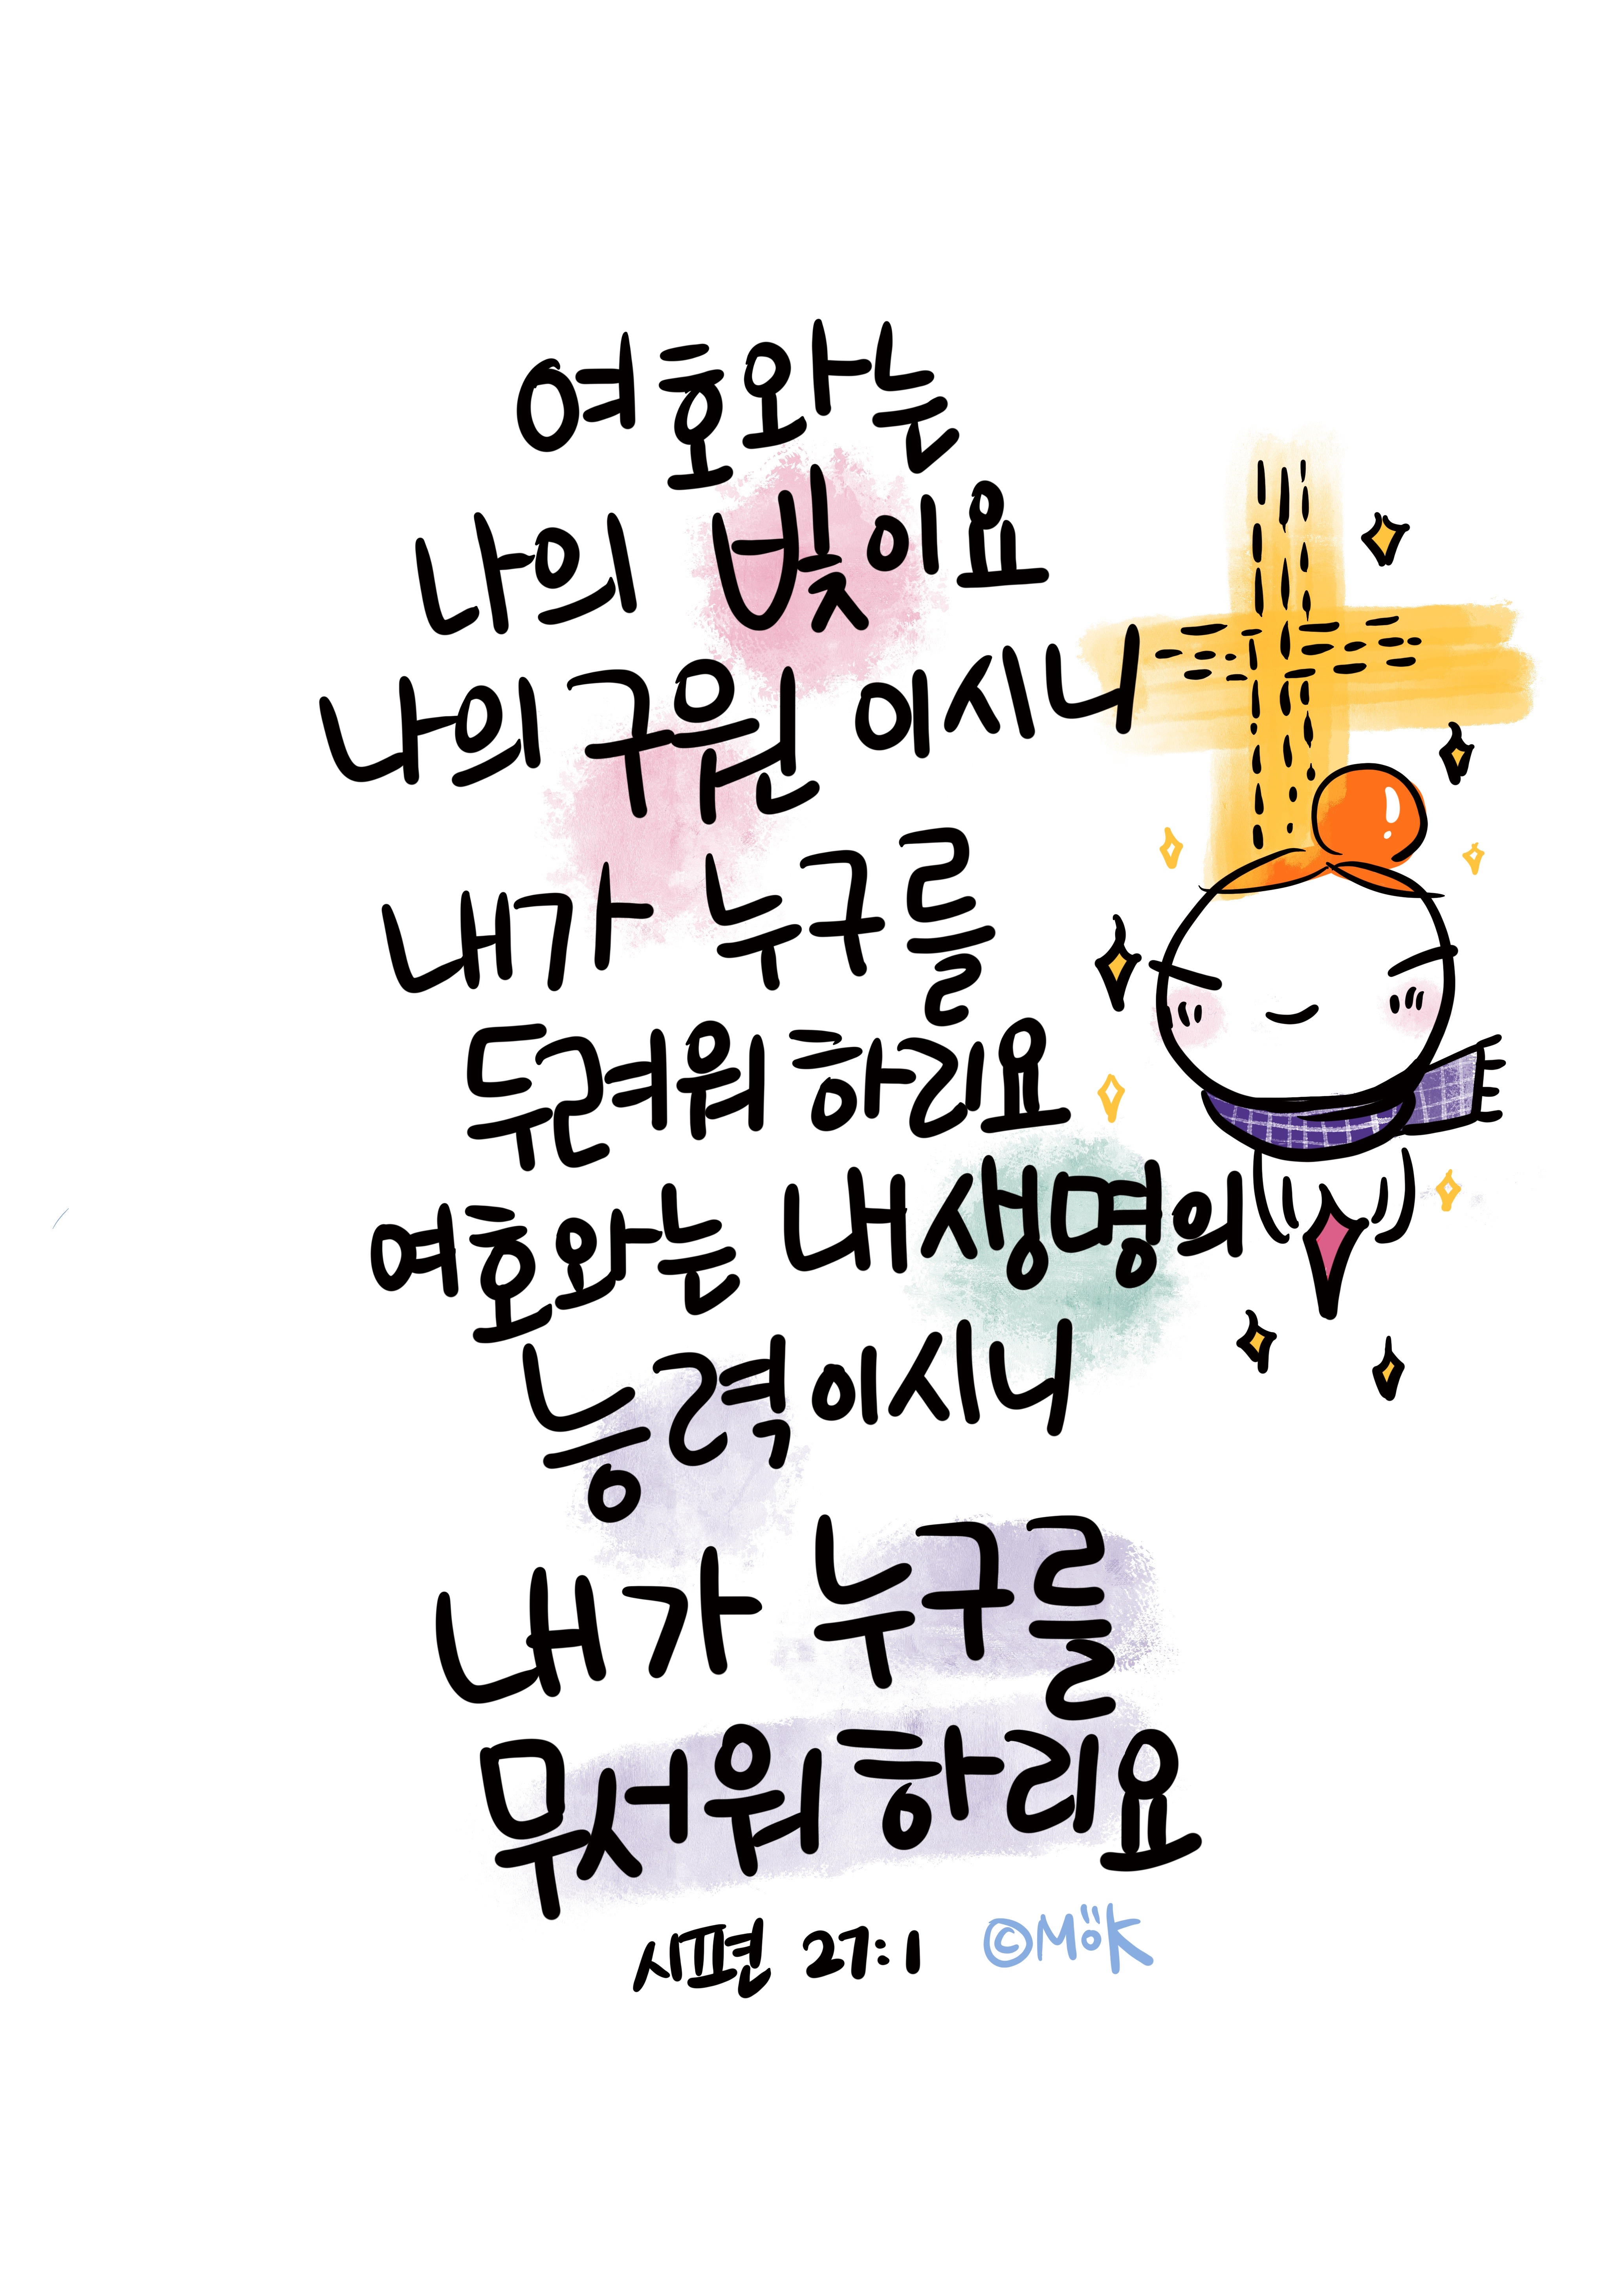 여호와는
나의 빛이요
나의 구원 이시니
내가 누구를
두려워 하리요
여호와는 내 생명의
능력이시니
내가 누구를
무서워 하리요
시편 27:1 ©MöK